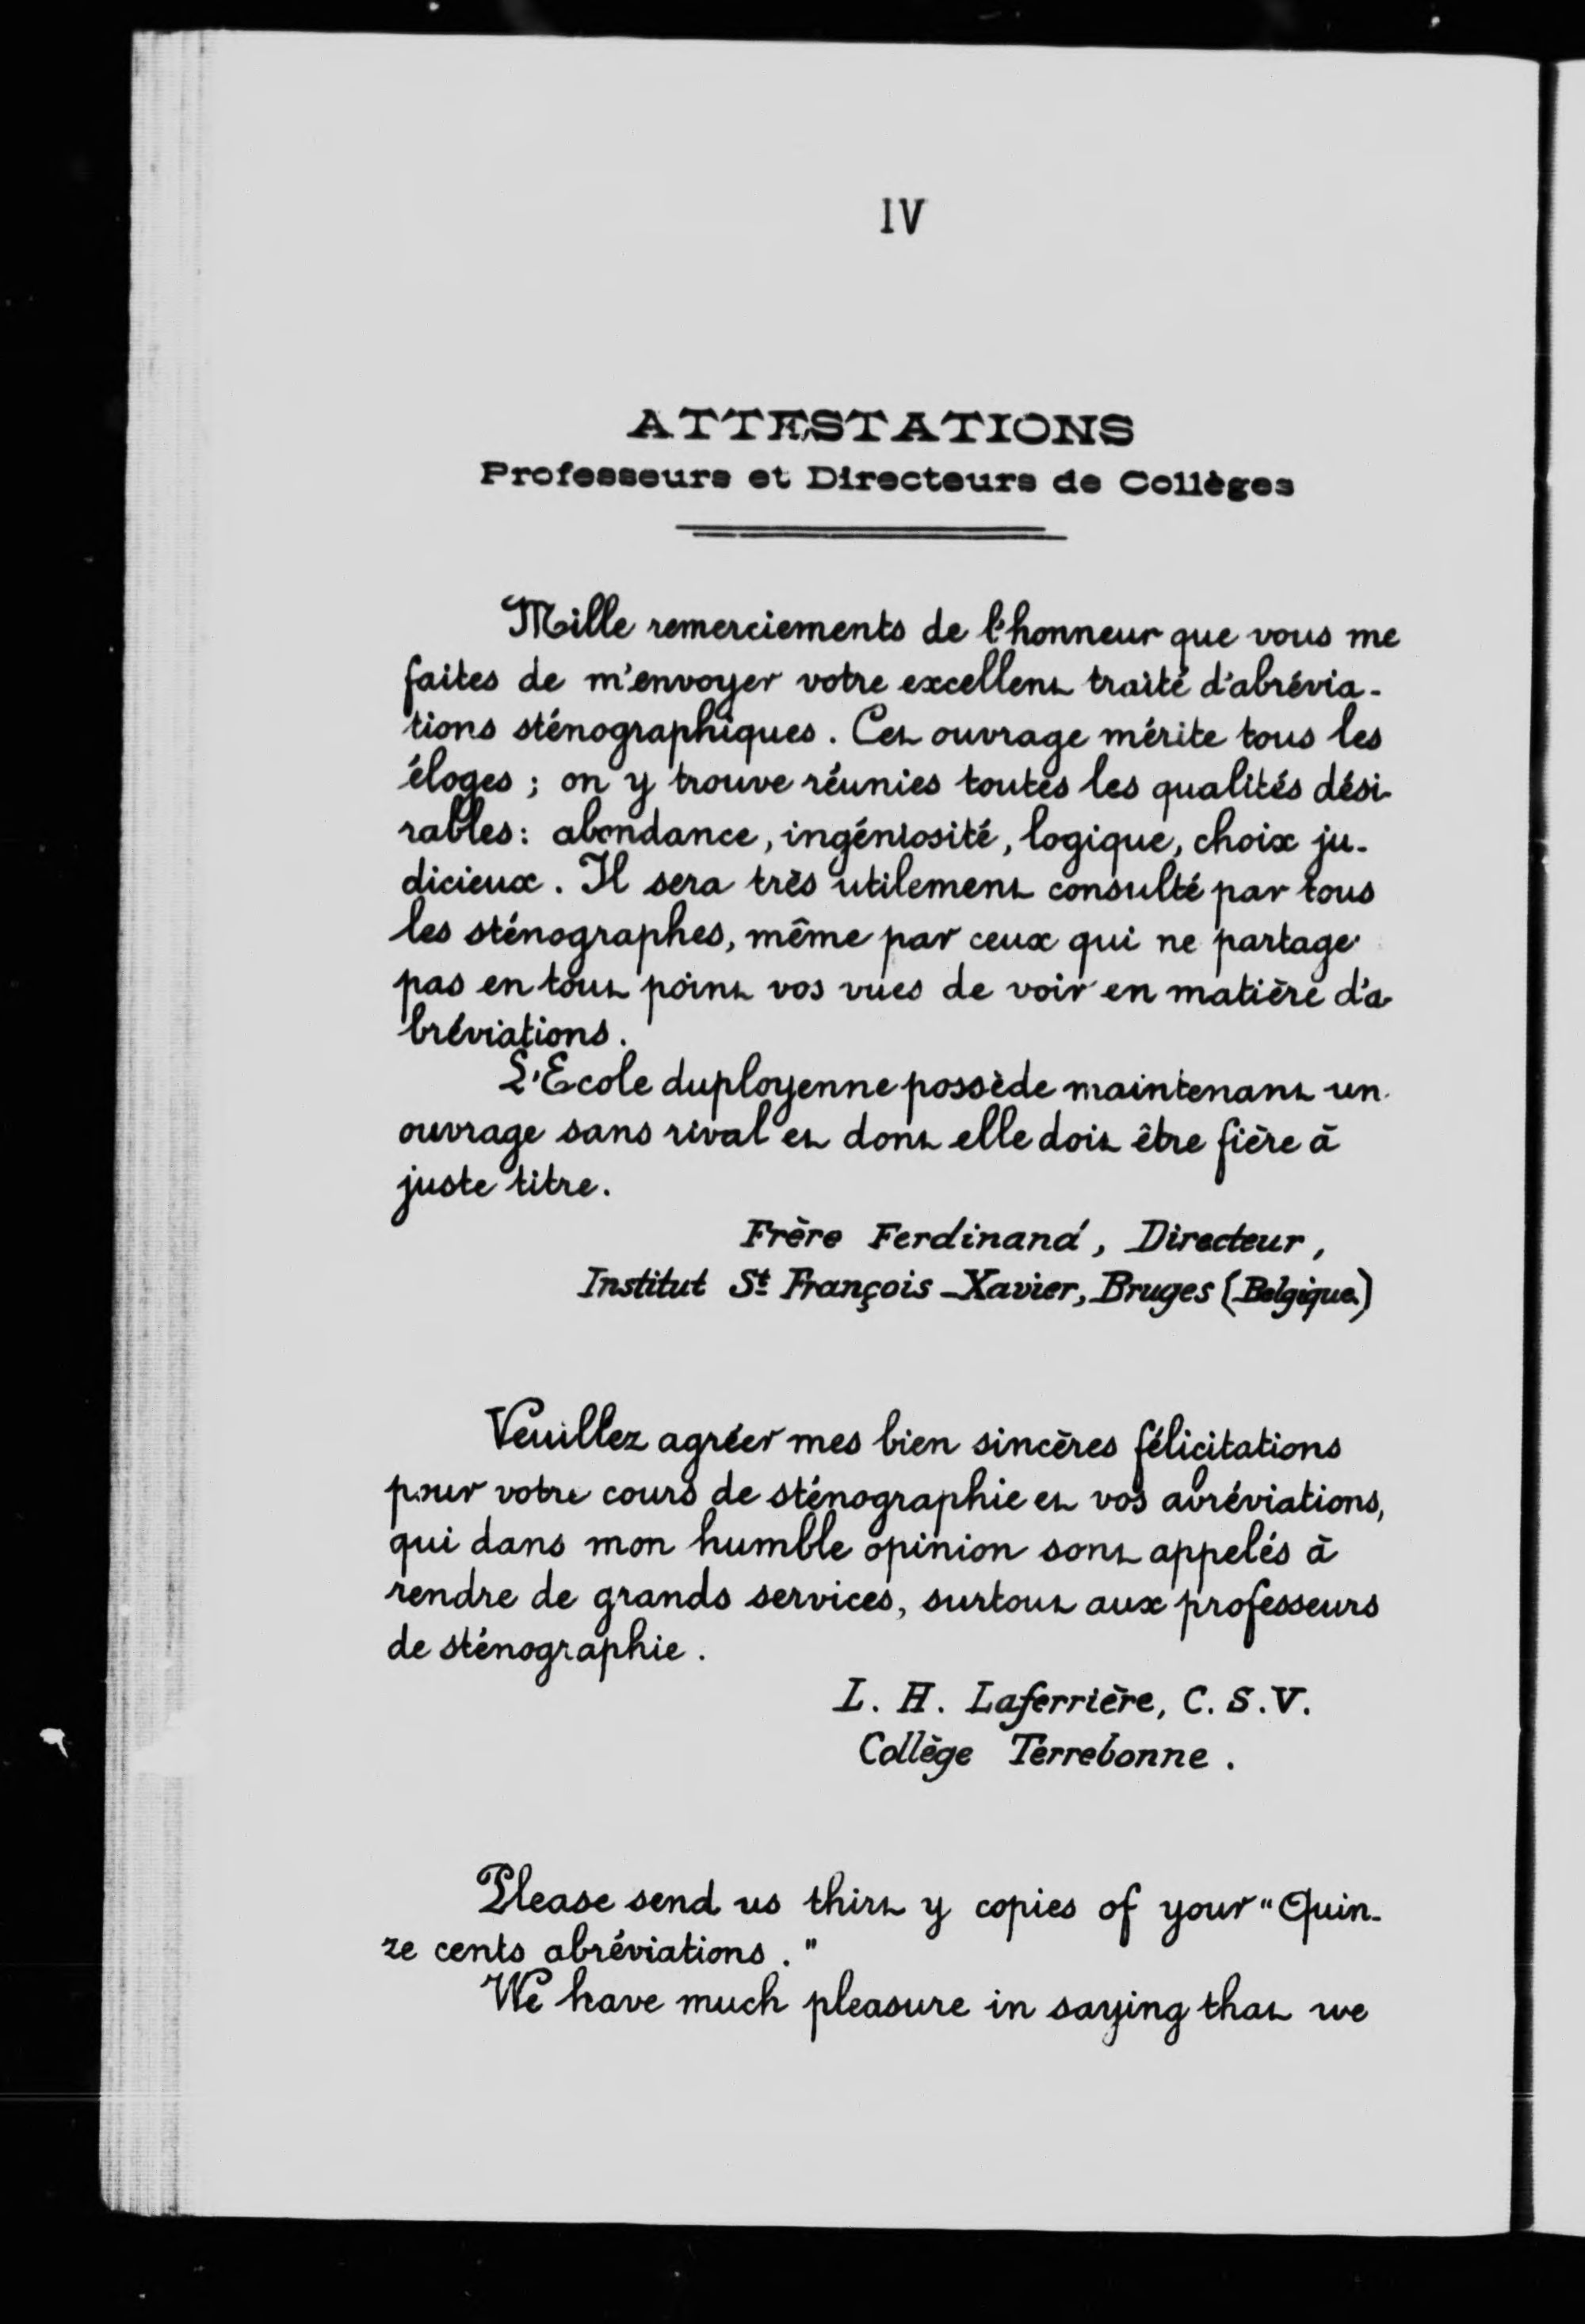 IV
ATTESTATIONS
Professeurs et Directeurs de Collèges
Mille remerciements de l'honneur que vous me
faites de m'envoyer votre excellent traité d'abrévia-
tions sténographiques. Cet ouvrage mérite tous les
éloges; on y trouve réunies toutes les qualités dési-
rables: abondance, ingéniosité, logique, choix ju-
dicieux. Il sera très utilement consulté par tous
les sténographes, même par ceux qui ne partage
pas en tout point vos vues de voir en matière d'a-
bréviations.
L'Ecole duployenne possède maintenant un
ouvrage sans rival et dont elle doit être fière à
juste titre.
Frère Ferdinand, Directeur,
Institut St François-Xavier, Bruges (Belgique.)
Veuillez agréer mes bien sincères félicitations
pour votre cours de sténographie et vos abréviations,
qui dans mon humble opinion sont appelés à
rendre de grands services, surtout aux professeurs
de sténographie.
L. H. Laferrière, C. S. V.
Collège Terrebonne.
Please send us thirty copies of your "Quin-
ze cents abréviations."
We have much pleasure in saying that we